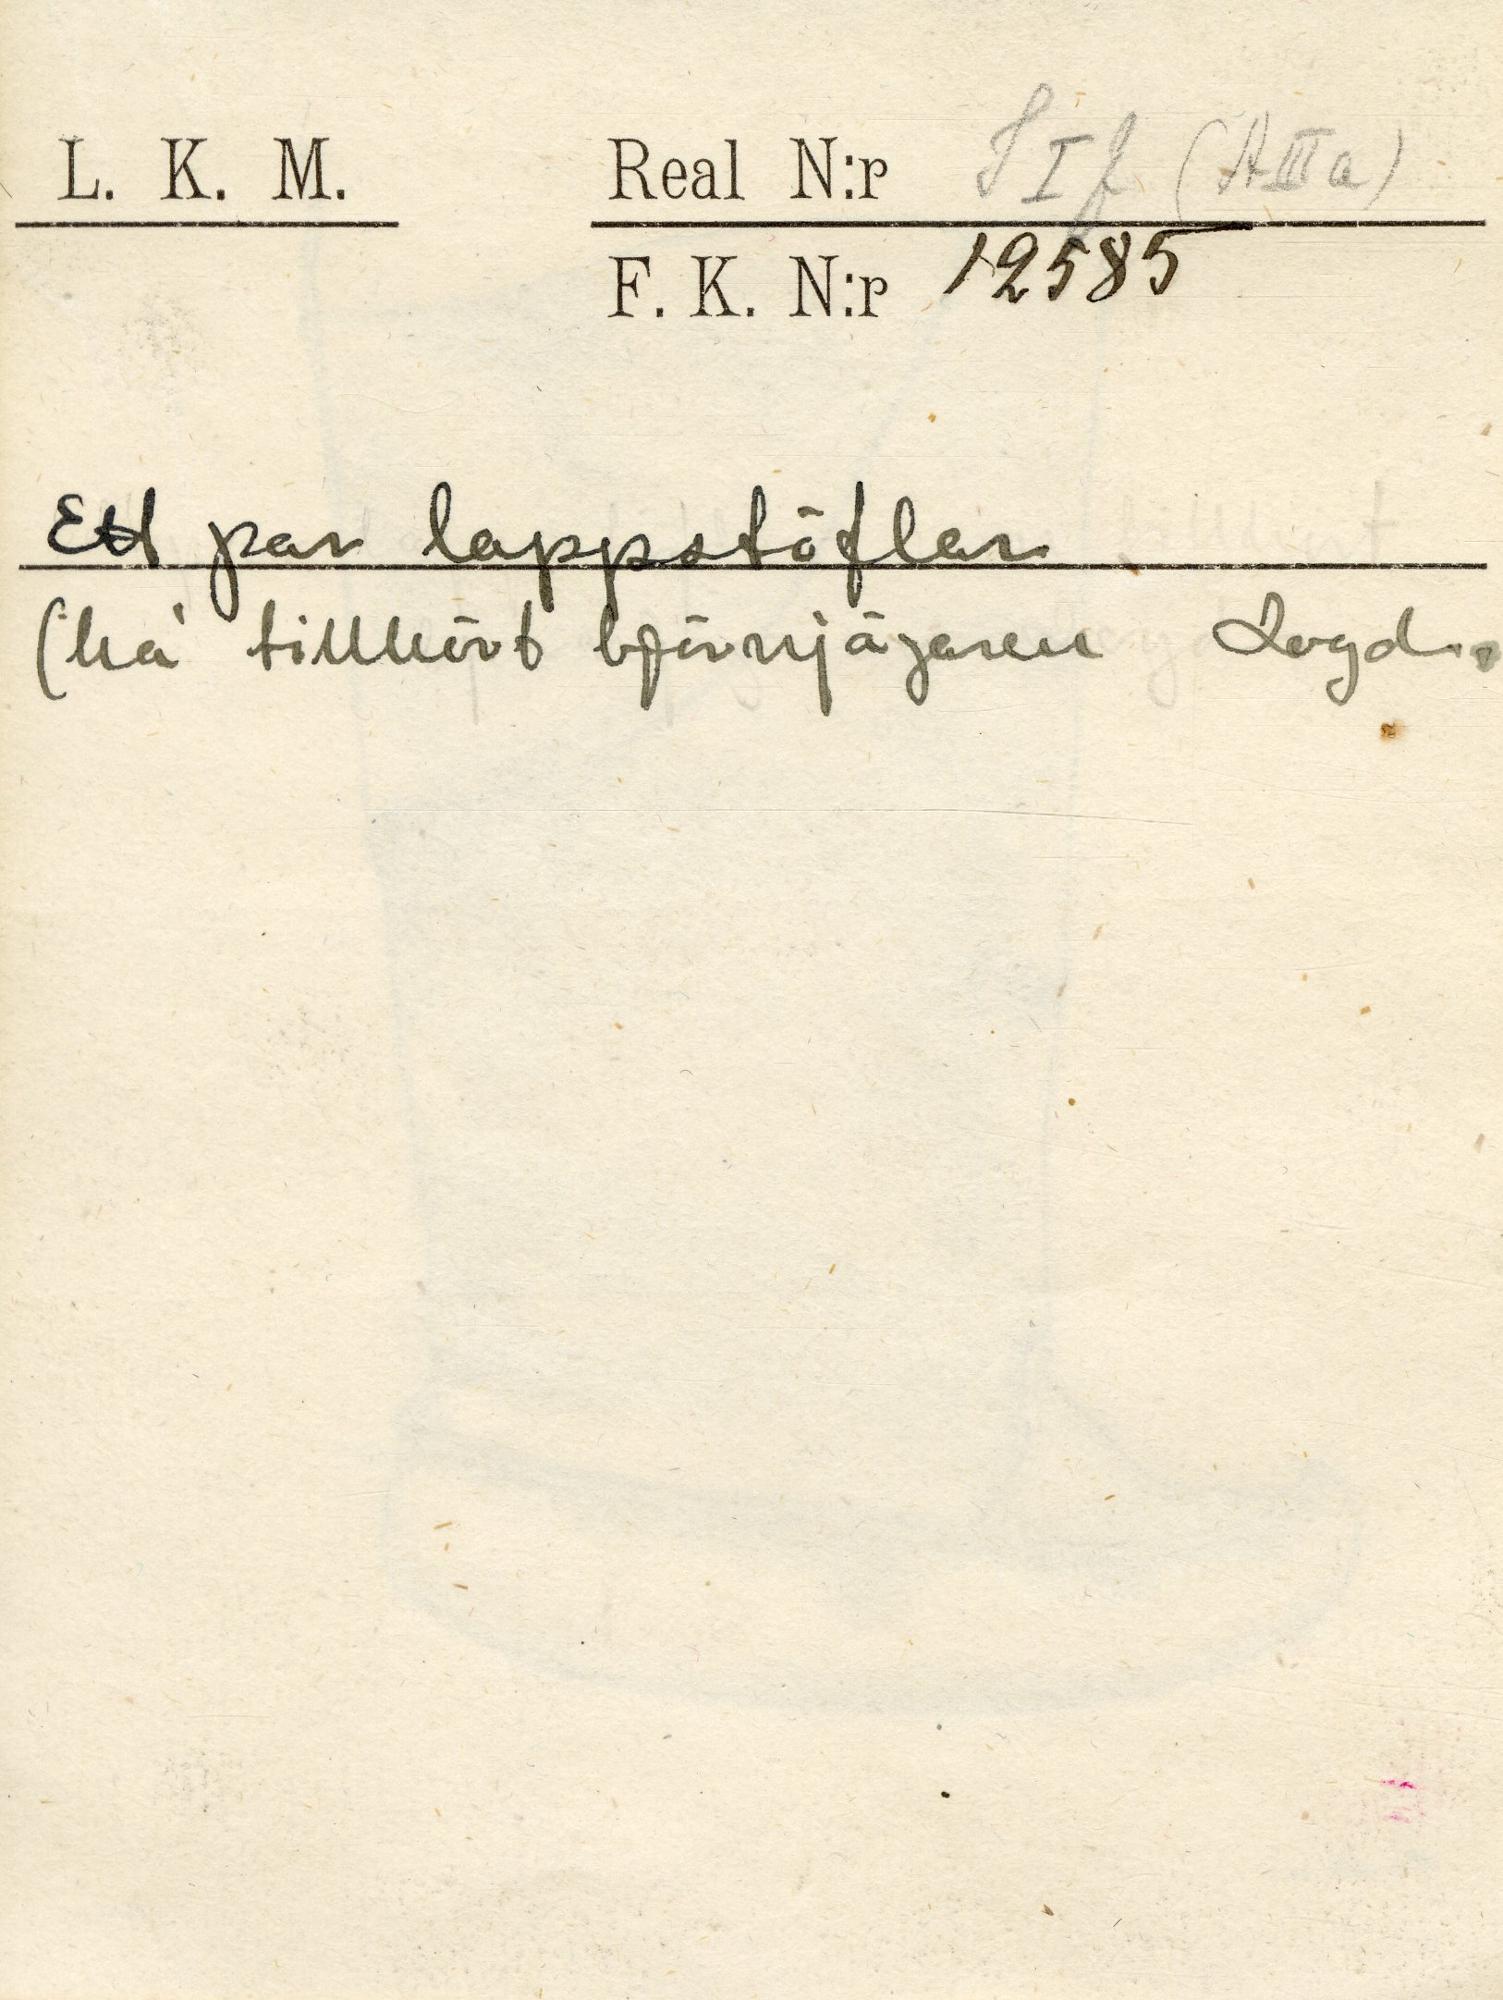 L. K. M. Real N:r S I f (A III a)
F. K. N:r 12585
Ett par lappstöflar
(ha tillhört björnjägaren Logd.